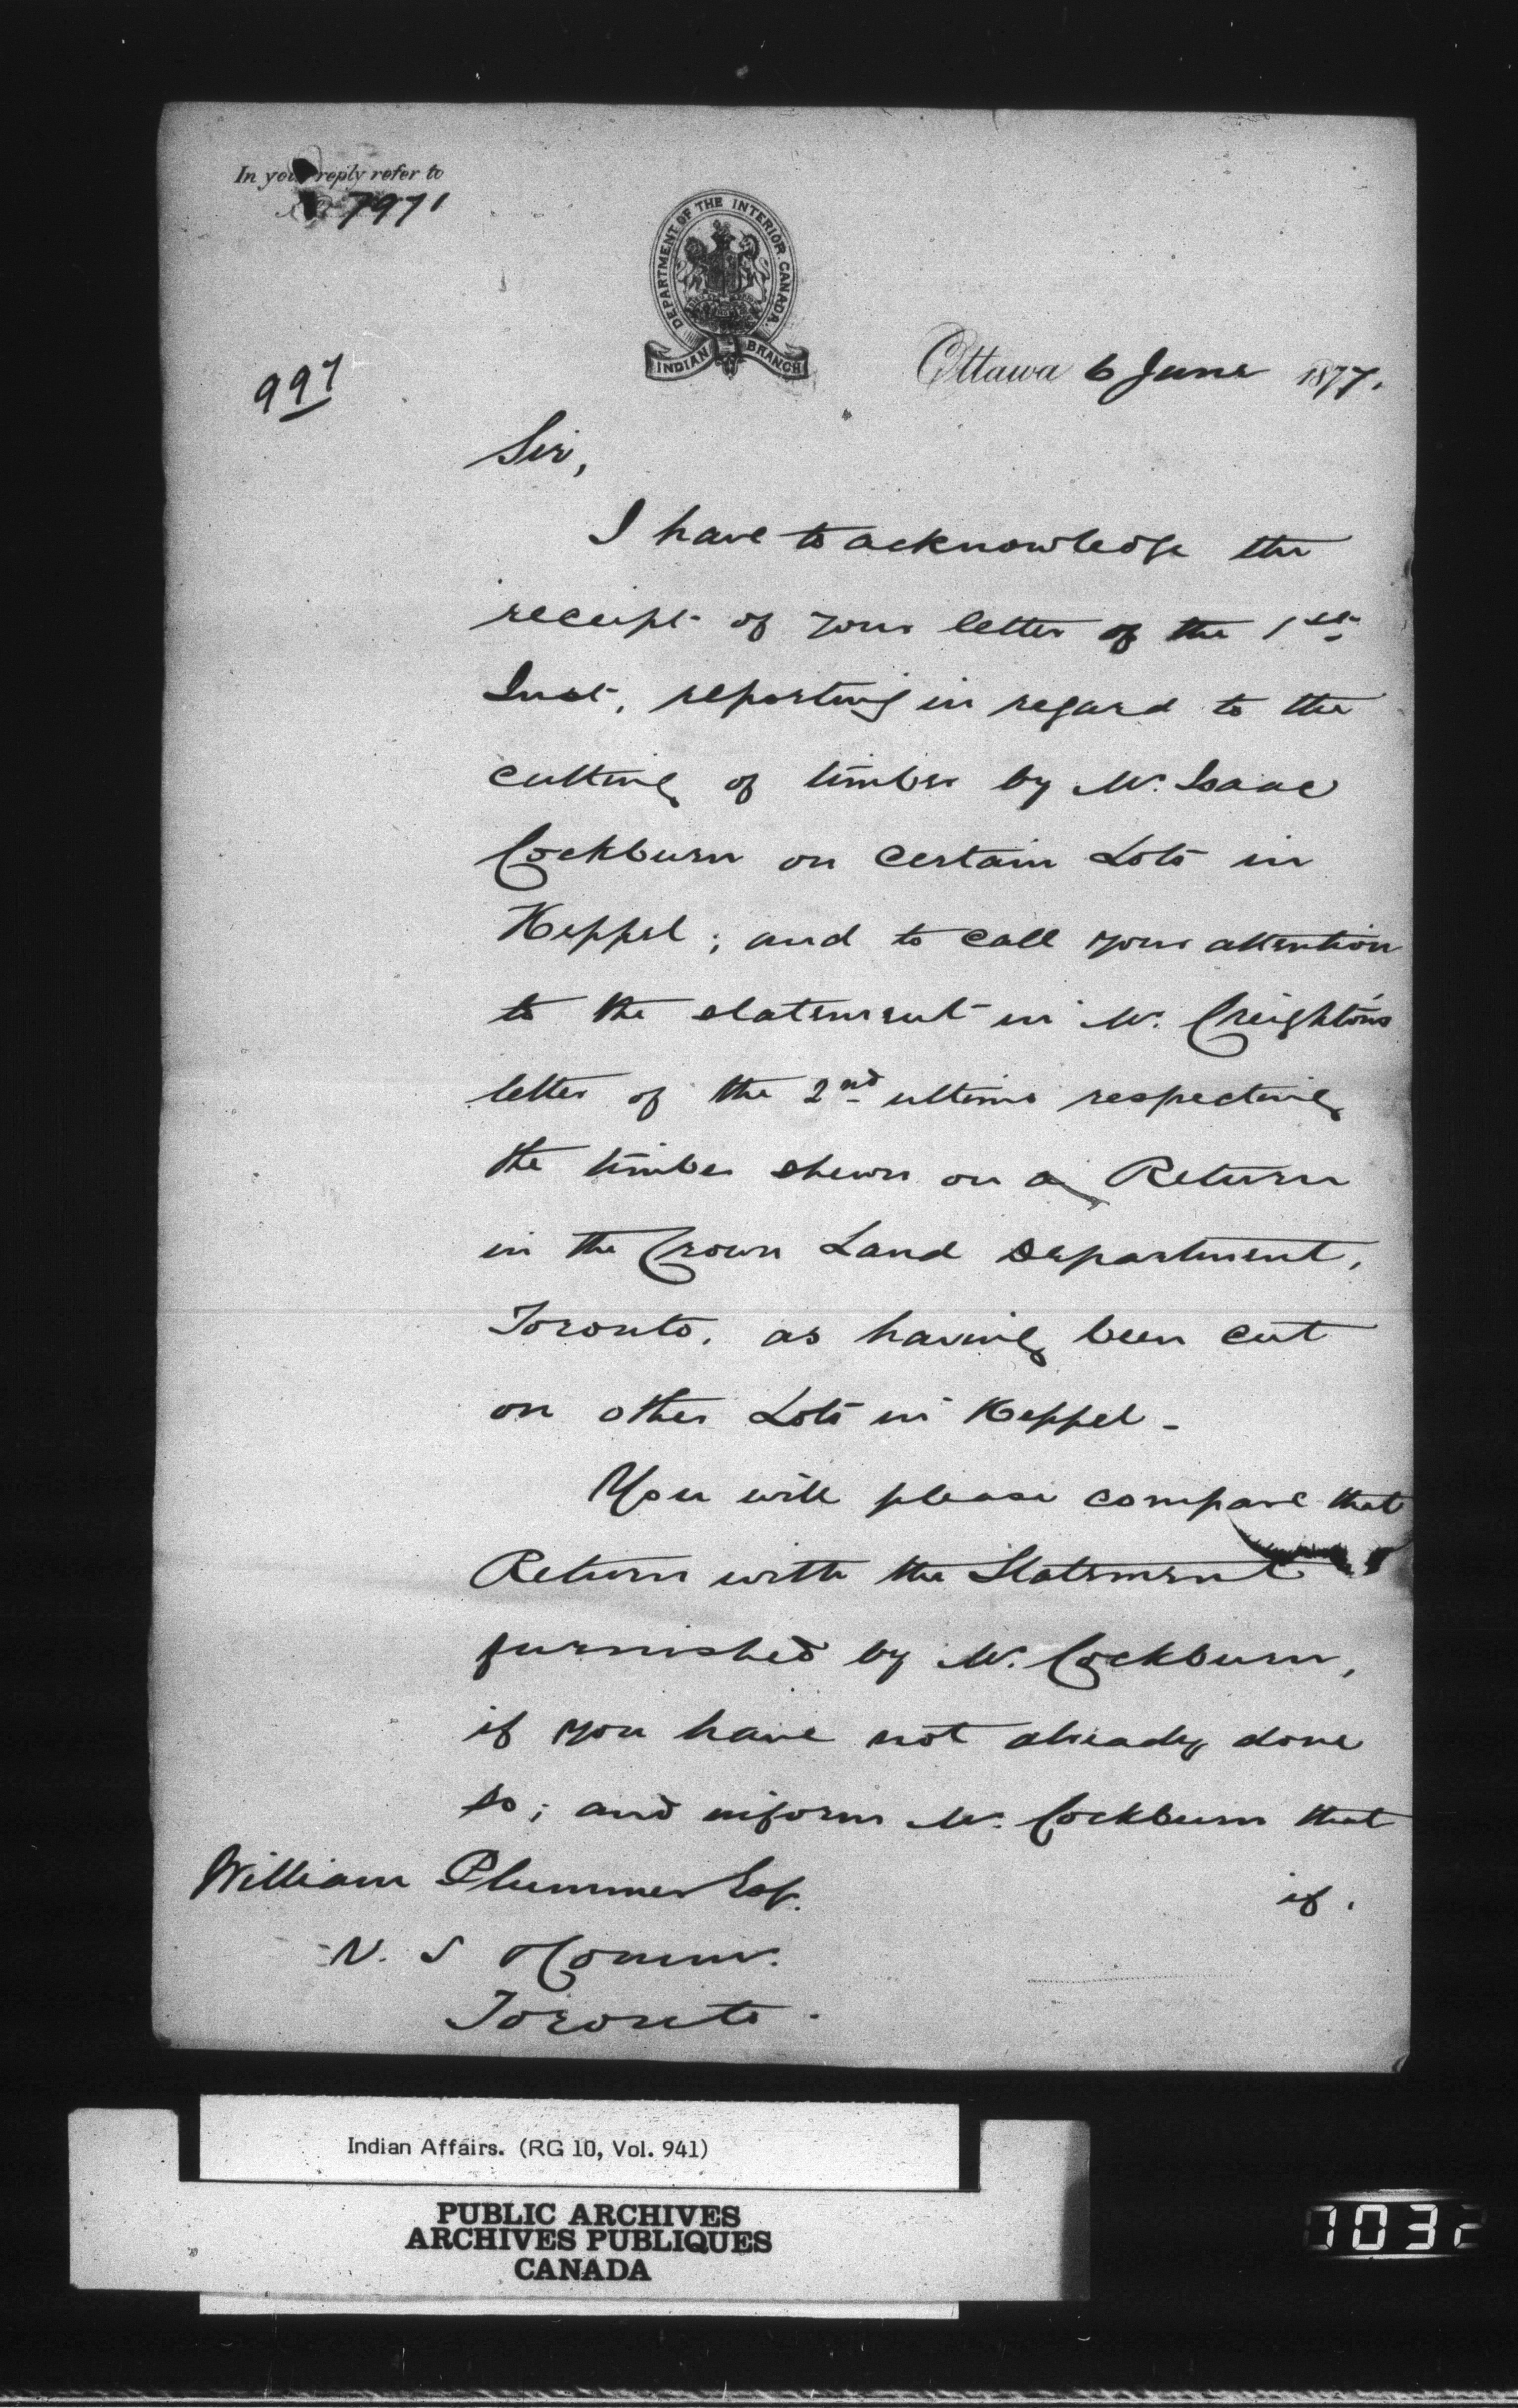 In your reply refer to
No 7971
DEPARTMENT OF THE INTERIOR CANADA.
INDIAN BRANCH
997
Ottawa 6 June 1877.
Sir,
I have to acknowledge the
receipt of your letter of the 1st
Inst, reporting in regard to the
cutting of timber by Mr. Isaac
Cockburn on certain Lots in
Keppel; and to call your attention
to the statement in Mr. Creighton's
letter of the 2nd ultimo respecting
the timber shewn on a Return
in the Crown Land Department,
Toronto, as having been cut
on other Lots in Keppel -
You will please compare that
Return with the Statement
furnished by Mr. Cockburn,
if you have not already done
so; and inform Mr. Cockburn that
if.
William Plummer Esq.
V. S Commr.
Toronto.
Indian Affairs. (RG 10, Vol. 941)
PUBLIC ARCHIVES
ARCHIVES PUBLIQUES
CANADA
1032